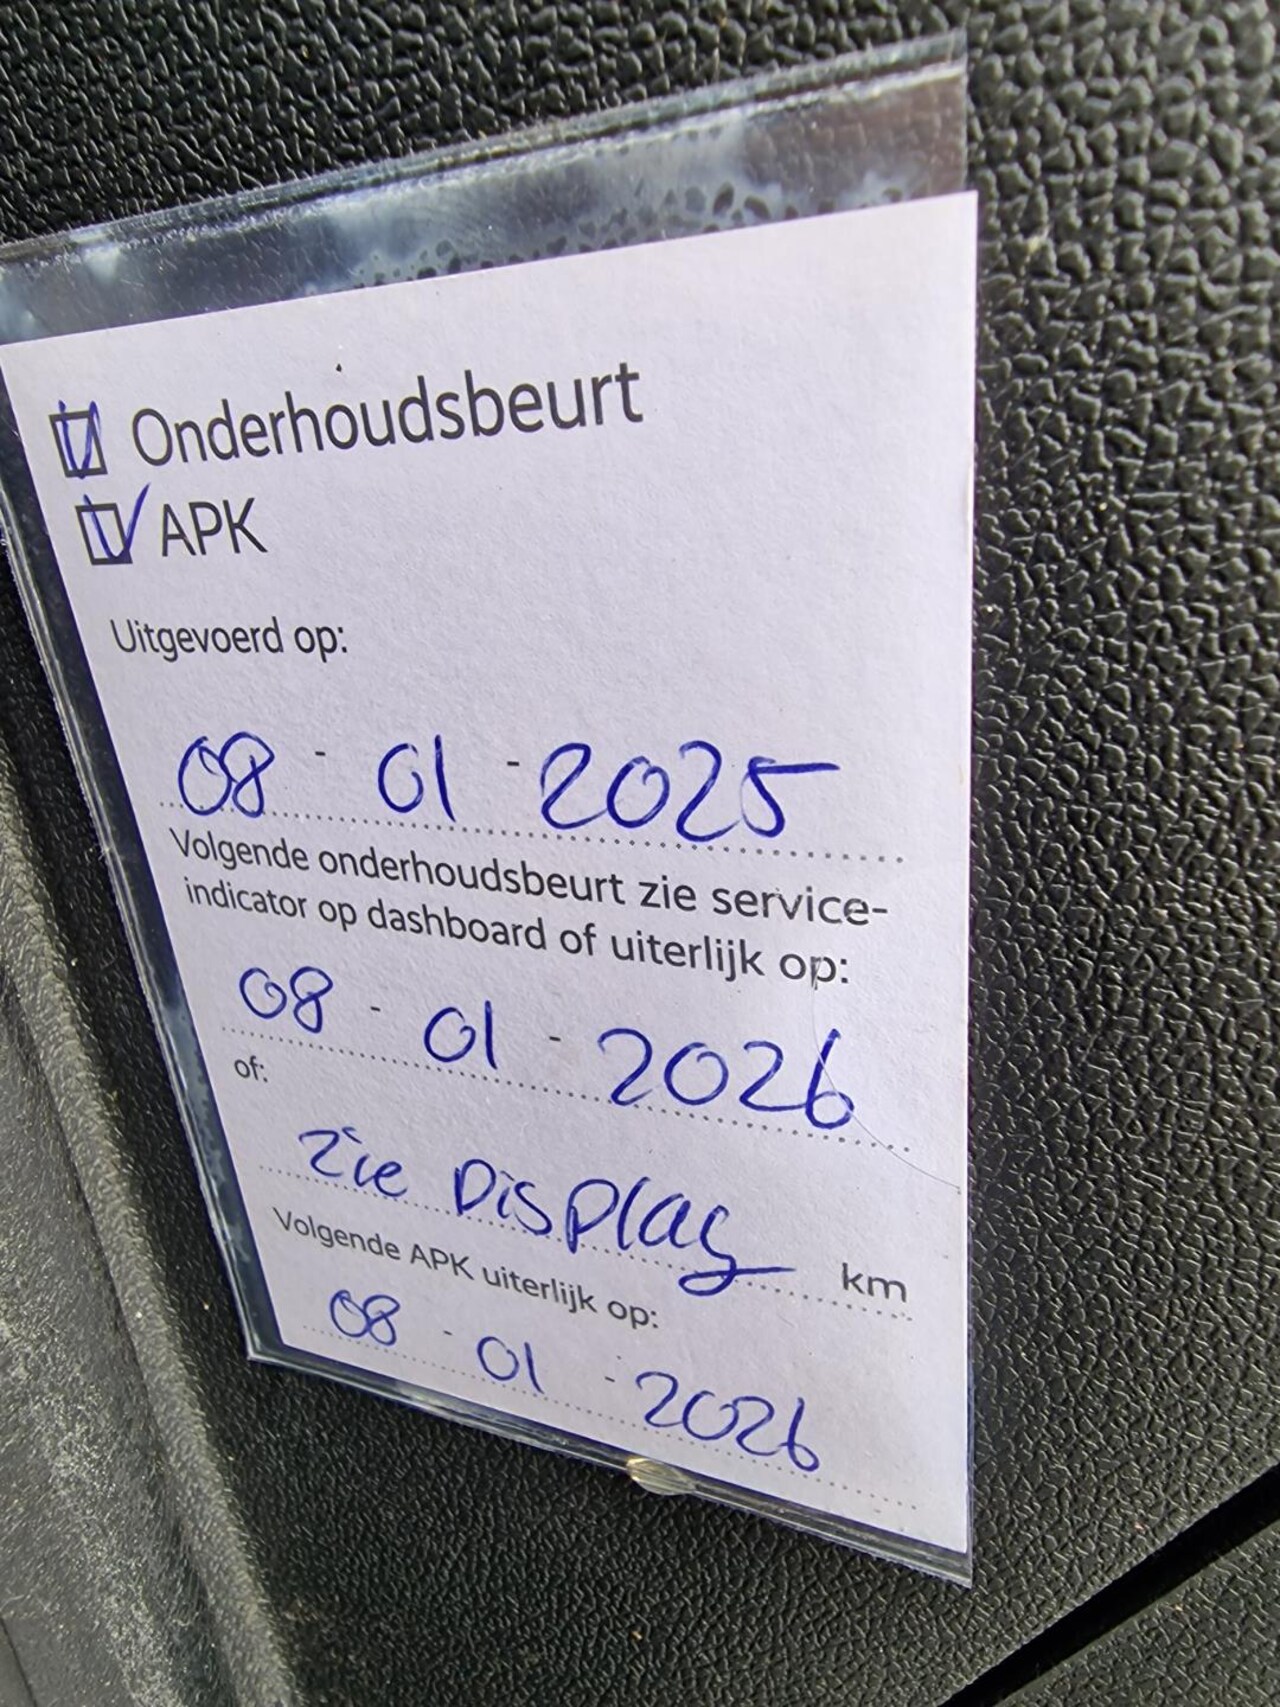 Onderhoudsbeurt
APK
Uitgevoerd op:
08 - 01 - 2025
Volgende onderhoudsbeurt zie service-
indicator op dashboard of uiterlijk op:
08 - 01 - 2026
of:
Zie Display km
Volgende APK uiterlijk op:
08 - 01 - 2026